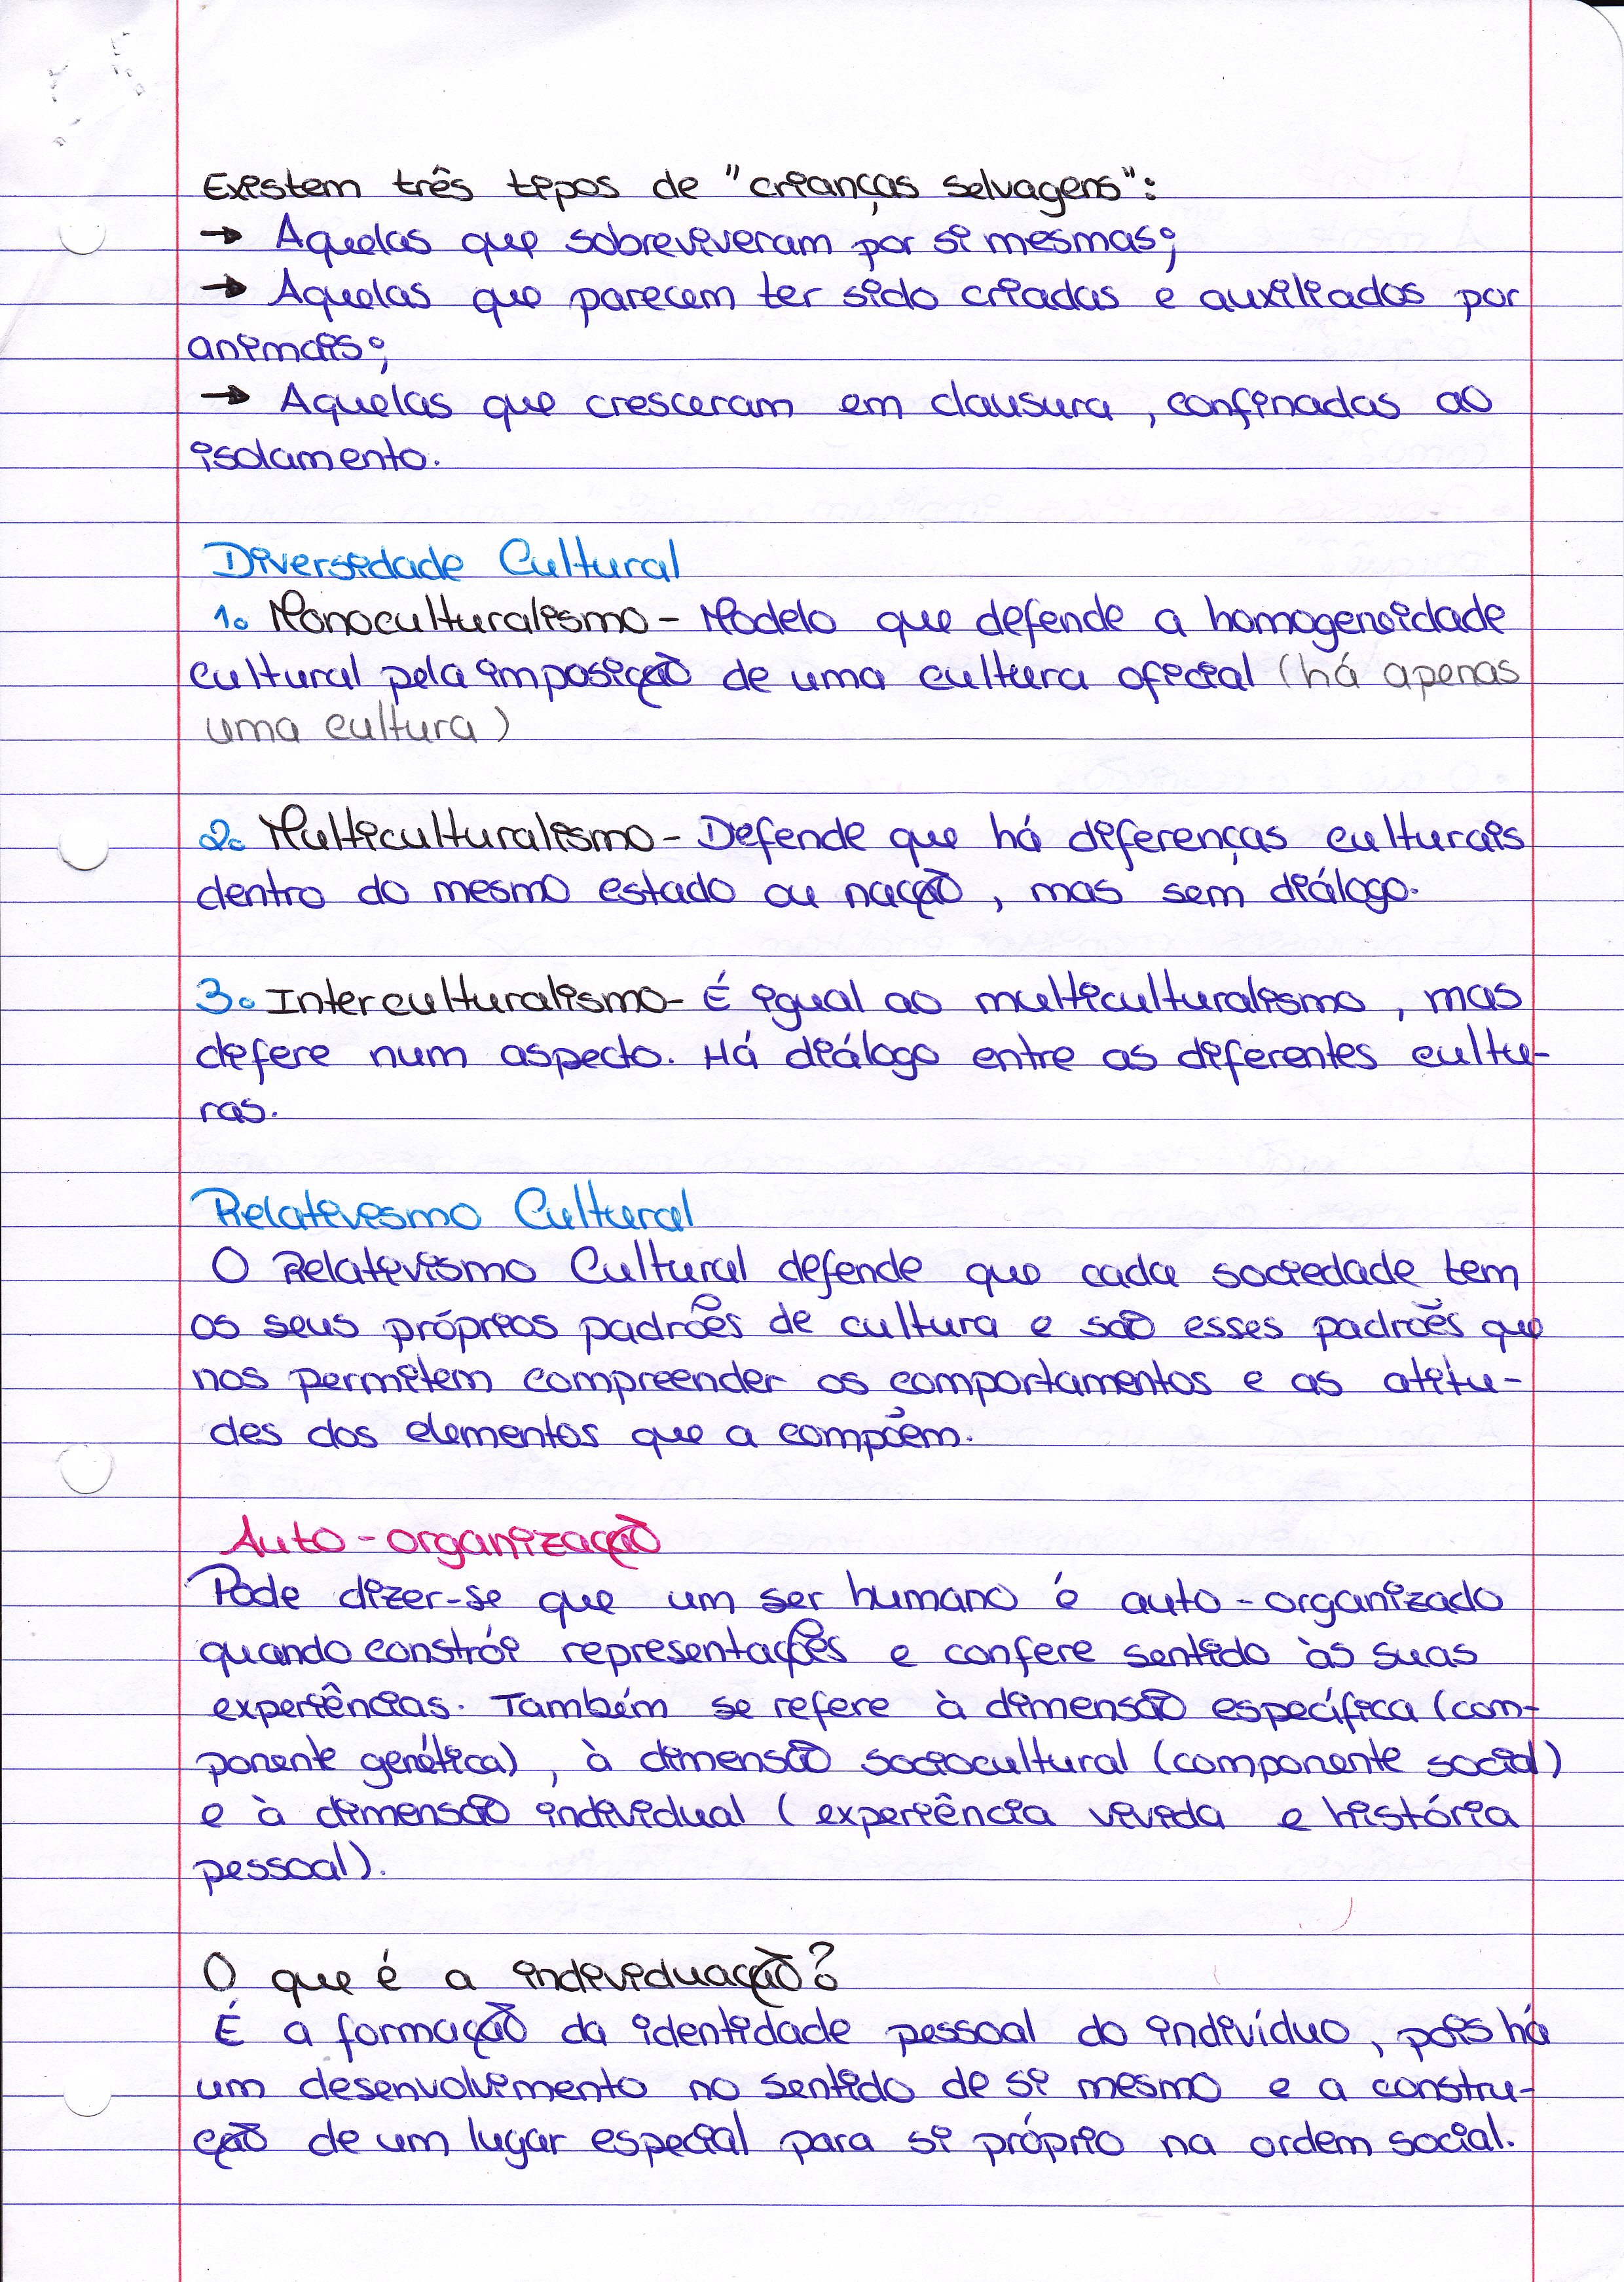 Existem três tipos de "crianças selvagens":
→ Aquelas que sobreviveram por si mesmas;
→ Aquelas que parecem ter sido criadas e auxiliadas por
animais;
→ Aquelas que cresceram em clausura, confinadas ao
isolamento.
Diversidade Cultural
1. Monoculturalismo - Modelo que defende a homogeneidade
cultural pela imposição de uma cultura oficial (há apenas
uma cultura)
2. Multiculturalismo - Defende que há diferenças culturais
dentro do mesmo estado ou nação, mas sem diálogo.
3. Interculturalismo - É igual ao multiculturalismo, mas
difere num aspecto. Há diálogo entre as diferentes cultu-
ras.
Relativismo Cultural
O Relativismo Cultural defende que cada sociedade tem
os seus próprios padrões de cultura e são esses padrões que
nos permitem compreender os comportamentos e as atitu-
des dos elementos que a compõem.
Auto-organização
Pode dizer-se que um ser humano é auto-organizado
quando constrói representações e confere sentido às suas
experiências. Também se refere à dimensão específica (com-
ponente genética), à dimensão sociocultural (componente social)
e à dimensão individual (experiência vivida e história
pessoal).
O que é a individuação?
É a formação da identidade pessoal do indivíduo, pois há
um desenvolvimento no sentido de si mesmo e a constru-
ção de um lugar especial para si próprio na ordem social.